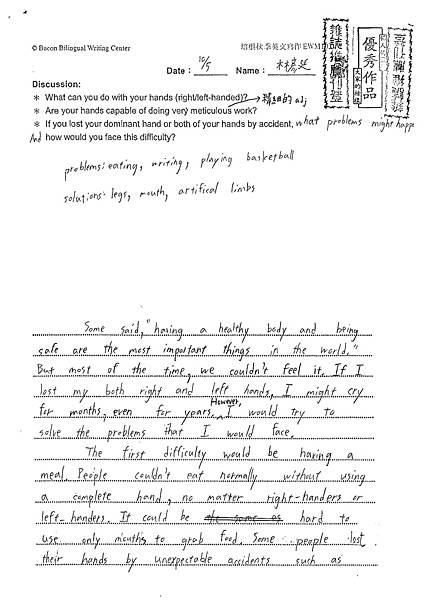 © Bacon Bilingual Writing Center
培根秋季英文寫作EWM
Date: 10/5 Name: 林
優秀作品
Discussion:
* What can you do with your hands (right/left-handed)? 精細的 adj
* Are your hands capable of doing very meticulous work?
* If you lost your dominant hand or both of your hands by accident, what problems might happe
And how would you face this difficulty?
problems: eating, writing, playing basketball
solutions: legs, mouth, artifical limbs
Some said, "having a healthy body and being
safe are the most important things in the world."
But most of the time, we couldn't feel it. If I
lost my both right and left hands, I might cry
for months, even for years. However, I would try to
solve the problems that I would face.
The first difficulty would be having a
meal. People couldn't eat normally without using
a complete hand, no matter right-handers or
left-handers. It could be the same as hard to
use only mouths to grab food. Some people lost
their hands by unexpectable accidents such as